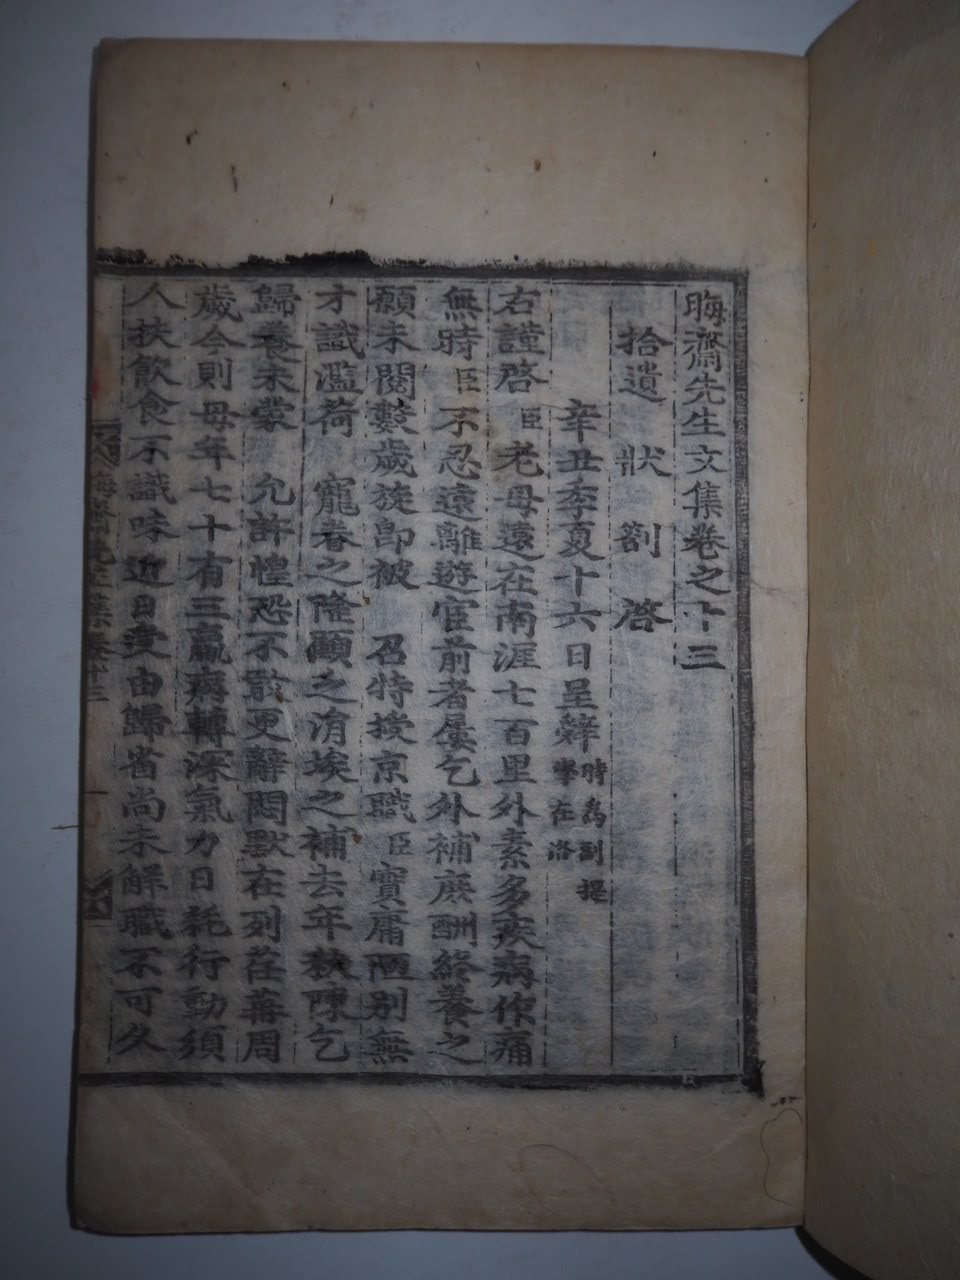 晦齋先生文集卷之十三
拾遺 狀 劄 啓
辛丑季夏十六日呈辭 時爲副提學在洛
右謹啓臣老母遠在南涯七百里外素多疾病作痛
無時臣不忍遠離遊宦前者屢乞外補庶酬終養之
願未閱數歲旋卽被 召特授京職臣實庸陋別無
才識濫荷 寵眷之隆顧之涓埃之補去年秋陳乞
歸養未蒙 允許惶恐不敢更辭悶默在列荏苒周
歲今則母年七十有三羸病轉深氣力日耗行動須
人扶飮食不識味近日受由歸省尙未解職不可久
晦齋先生集卷十三 一